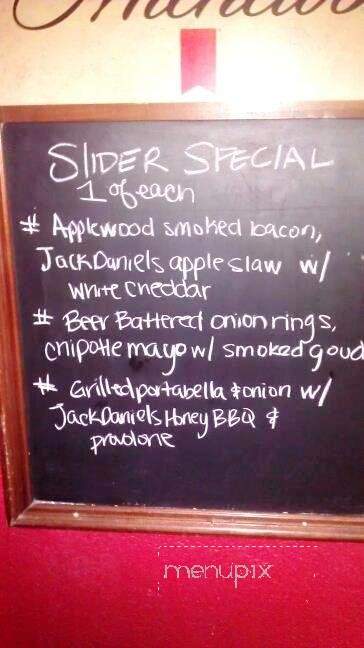 SLIDER SPECIAL
1 of each
# Applewood smoked bacon,
Jack Daniels apple slaw w/
white cheddar
# Beer Battered onion rings,
chipotle mayo w/ smoked goud
# Grilled portabella & onion w/
Jack Daniels Honey BBQ &
provolone
menupix